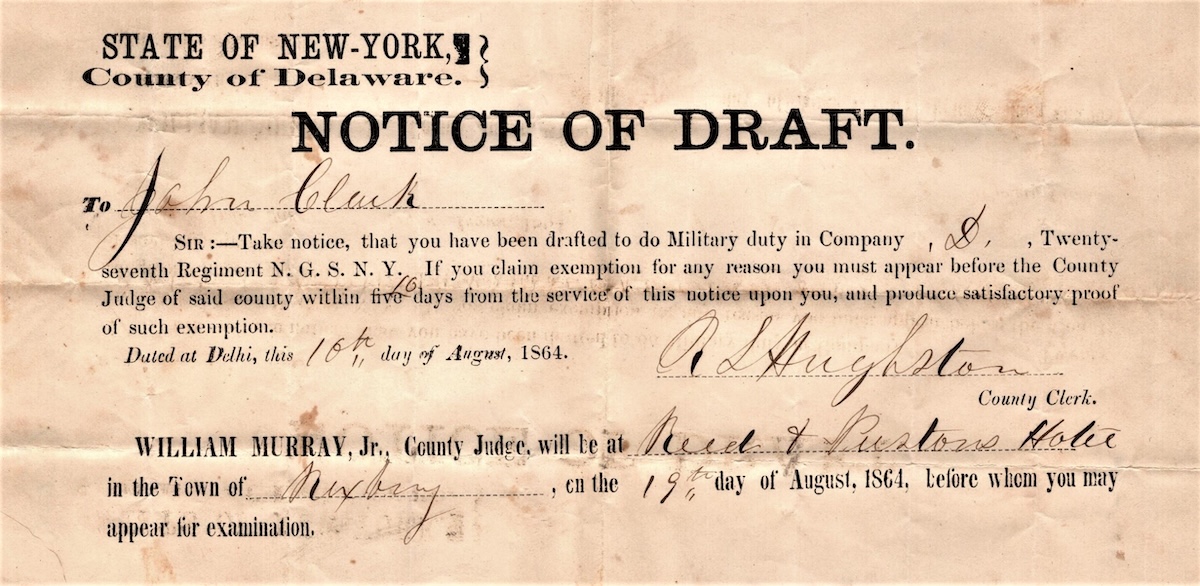 STATE OF NEW-YORK,
County of Delaware.
NOTICE OF DRAFT.
To John Clark
SIR :—Take notice, that you have been drafted to do Military duty in Company , D. , Twenty-
seventh Regiment N. G. S. N. Y. If you claim exemption for any reason you must appear before the County
Judge of said county within five 10 days from the service of this notice upon you, and produce satisfactory proof
of such exemption.
Dated at Delhi, this 10th day of August, 1864.
R S Hughston
County Clerk.
WILLIAM MURRAY, Jr., County Judge, will be at Reed &
in the Town of Roxbury , on the 19th day of August, 1864, before whom you may
appear for examination.